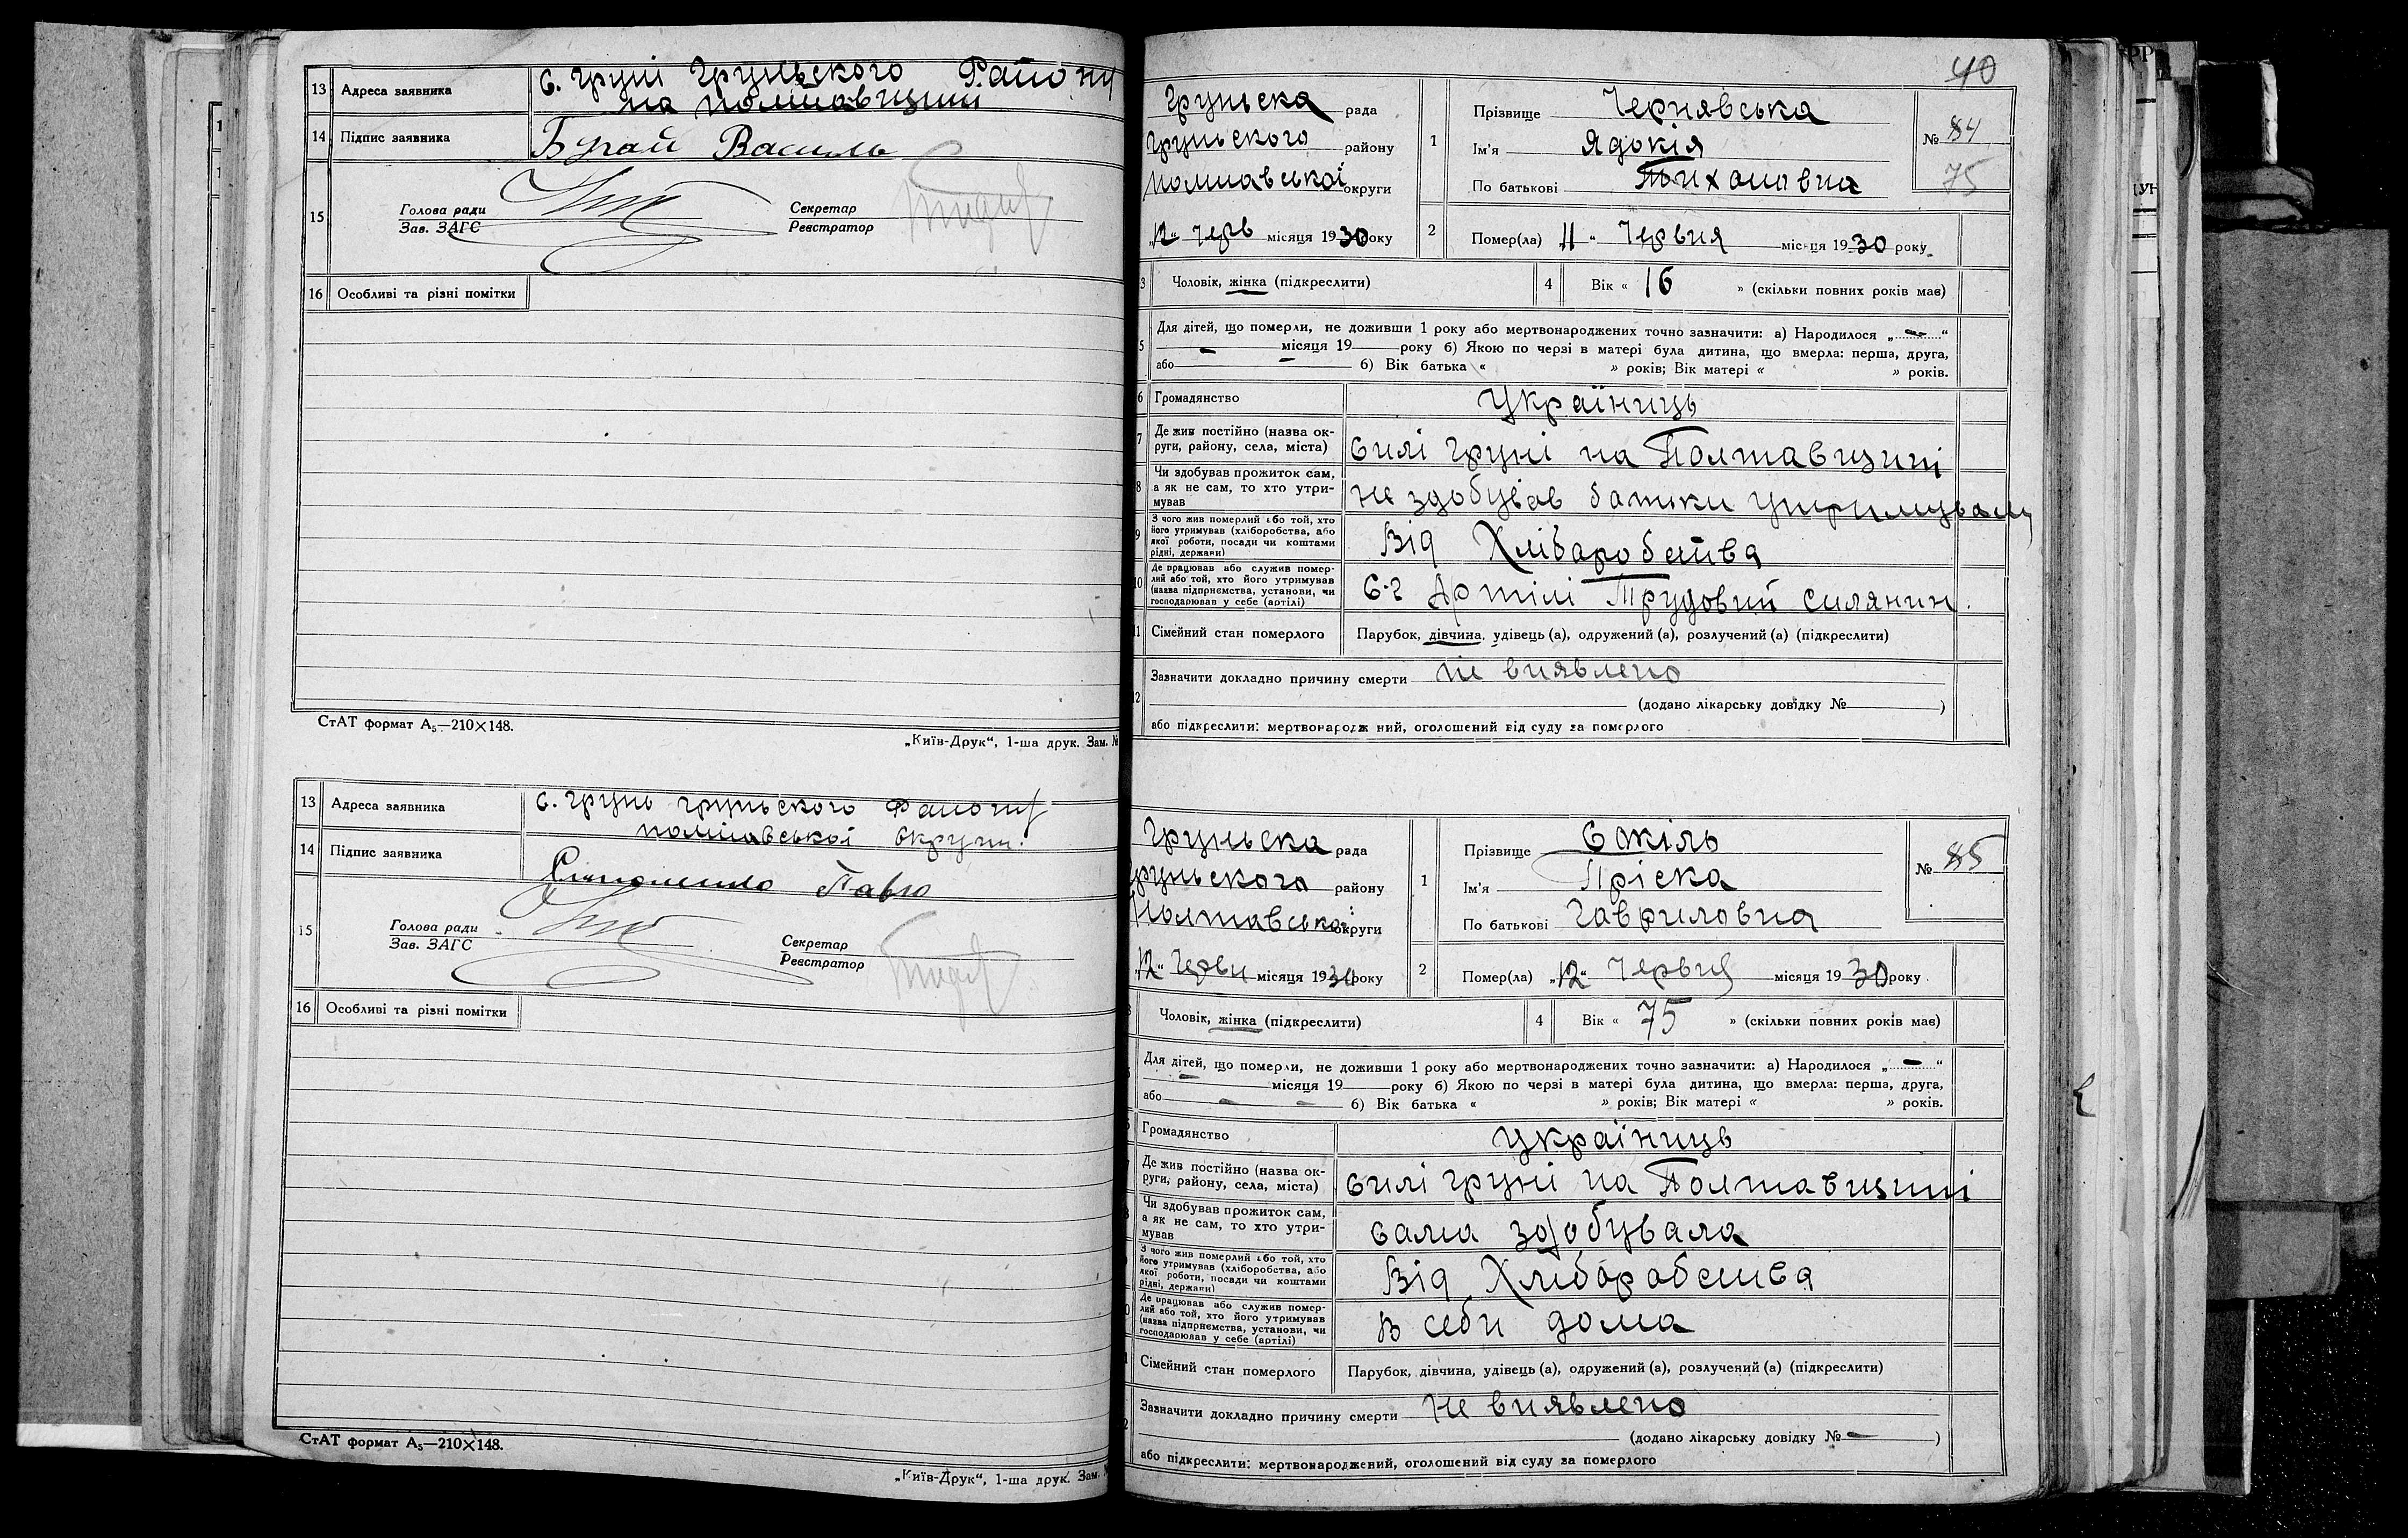 13 Адреса заявника с. Груні Груньского Району
на Полтавщині
14 Підпис заявника Бугай Василь
15 Голова ради
Зав. ЗАГС
Секретар
Реєстратор
16 Особливі та різні помітки
СтАТ формат А₅—210×148.
„Київ-Друк“, 1-ша друк. Зам. №
13 Адреса заявника с. Грунь Груньского Району
Полтавської Округи.
14 Підпис заявника Павло
15 Голова ради
Зав. ЗАГС
Секретар
Реєстратор
16 Особливі та різні помітки
СтАТ формат А₅—210×148.
„Київ-Друк“, 1-ша друк. Зам.
40
Груньска рада
Груньского району
Полтавської округи
„12“ Черв місяця 1930 року
1 Прізвище Чернявська
Ім'я Ядокія
По батькові Тихоновна
№ 84
75
2 Помер(ла) 11 “ Червня місяця 1930 року
3 Чоловік, жінка (підкреслити)
4 Вік « 16 » (скільки повних років має)
5 Для дітей, що померли, не доживши 1 року або мертвонароджених точно зазначити: а) Народилося „ — “
— місяця 19 року б) Якою по черзі в матері була дитина, що вмерла: перша, друга,
або — б) Вік батька « » років; Вік матері « » років.
6 Громадянство Україниць
7 Де жив постійно (назва ок-
руги, району, села, міста) силі Груні на Полтавщині
8 Чи здобував прожиток сам,
а як не сам, то хто утри-
мував не здобував батьки утримували
9 З чого жив померлий або той, хто
його утримував (хліборобства, або
якої роботи, посади чи коштами
рідні, держави) Від Хліборобства
10 Де працював або служив помер-
лий або той, хто його утримував
(назва підприємства, установи, чи
господарював у себе (артілі) С-г Артілі Трудовий силянин.
11 Сімейний стан померлого Парубок, дівчина, удівець (а), одружений (а), розлучений (а) (підкреслити)
12 Зазначити докладно причину смерти не виявлено
(додано лікарську довідку № )
або підкреслити: мертвонародж ний, оголошений від суду за померлого
Груньска рада
Груньского району
Полтавської округи
12“ Черви місяця 1930 року
1 Прізвище
Ім'я Пріска
По батькові Гавриловна
№ 85
2 Помер(ла) „12“ Червня місяця 1930 року.
Чоловік, жінка (підкреслити)
4 Вік « 75 » (скільки повних років має)
Для дітей, що померли, не доживши 1 року або мертвонароджених точно зазначити: а) Народилося „ — “
— місяця 19 року б) Якою по черзі в матері була дитина, що вмерла: перша, друга,
або — — б) Вік батька « » років; Вік матері « » років.
Громадянство Україниць
Де жив постійно (назва ок-
руги, району, села, міста) силі Груні на Полтавщині
Чи здобував прожиток сам,
а як не сам, то хто утри-
мував сама здобувала
З чого жив померлий або той, хто
його утримував (хліборобства, або
якої роботи, посади чи коштами
рідні, держави) Від Хліборобства
Де працював або служив помер-
лий або той, хто його утримував
(назва підприємства, установи, чи
господарював у себе (артілі) В себи дома
Сімейний стан померлого Парубок, дівчина, удівець (а), одружений (а), розлучений (а) (підкреслити)
Зазначити докладно причину смерти не виявлено
(додано лікарську довідку № — )
або підкреслити: мертвонароджений, оголошений від суду за померлого